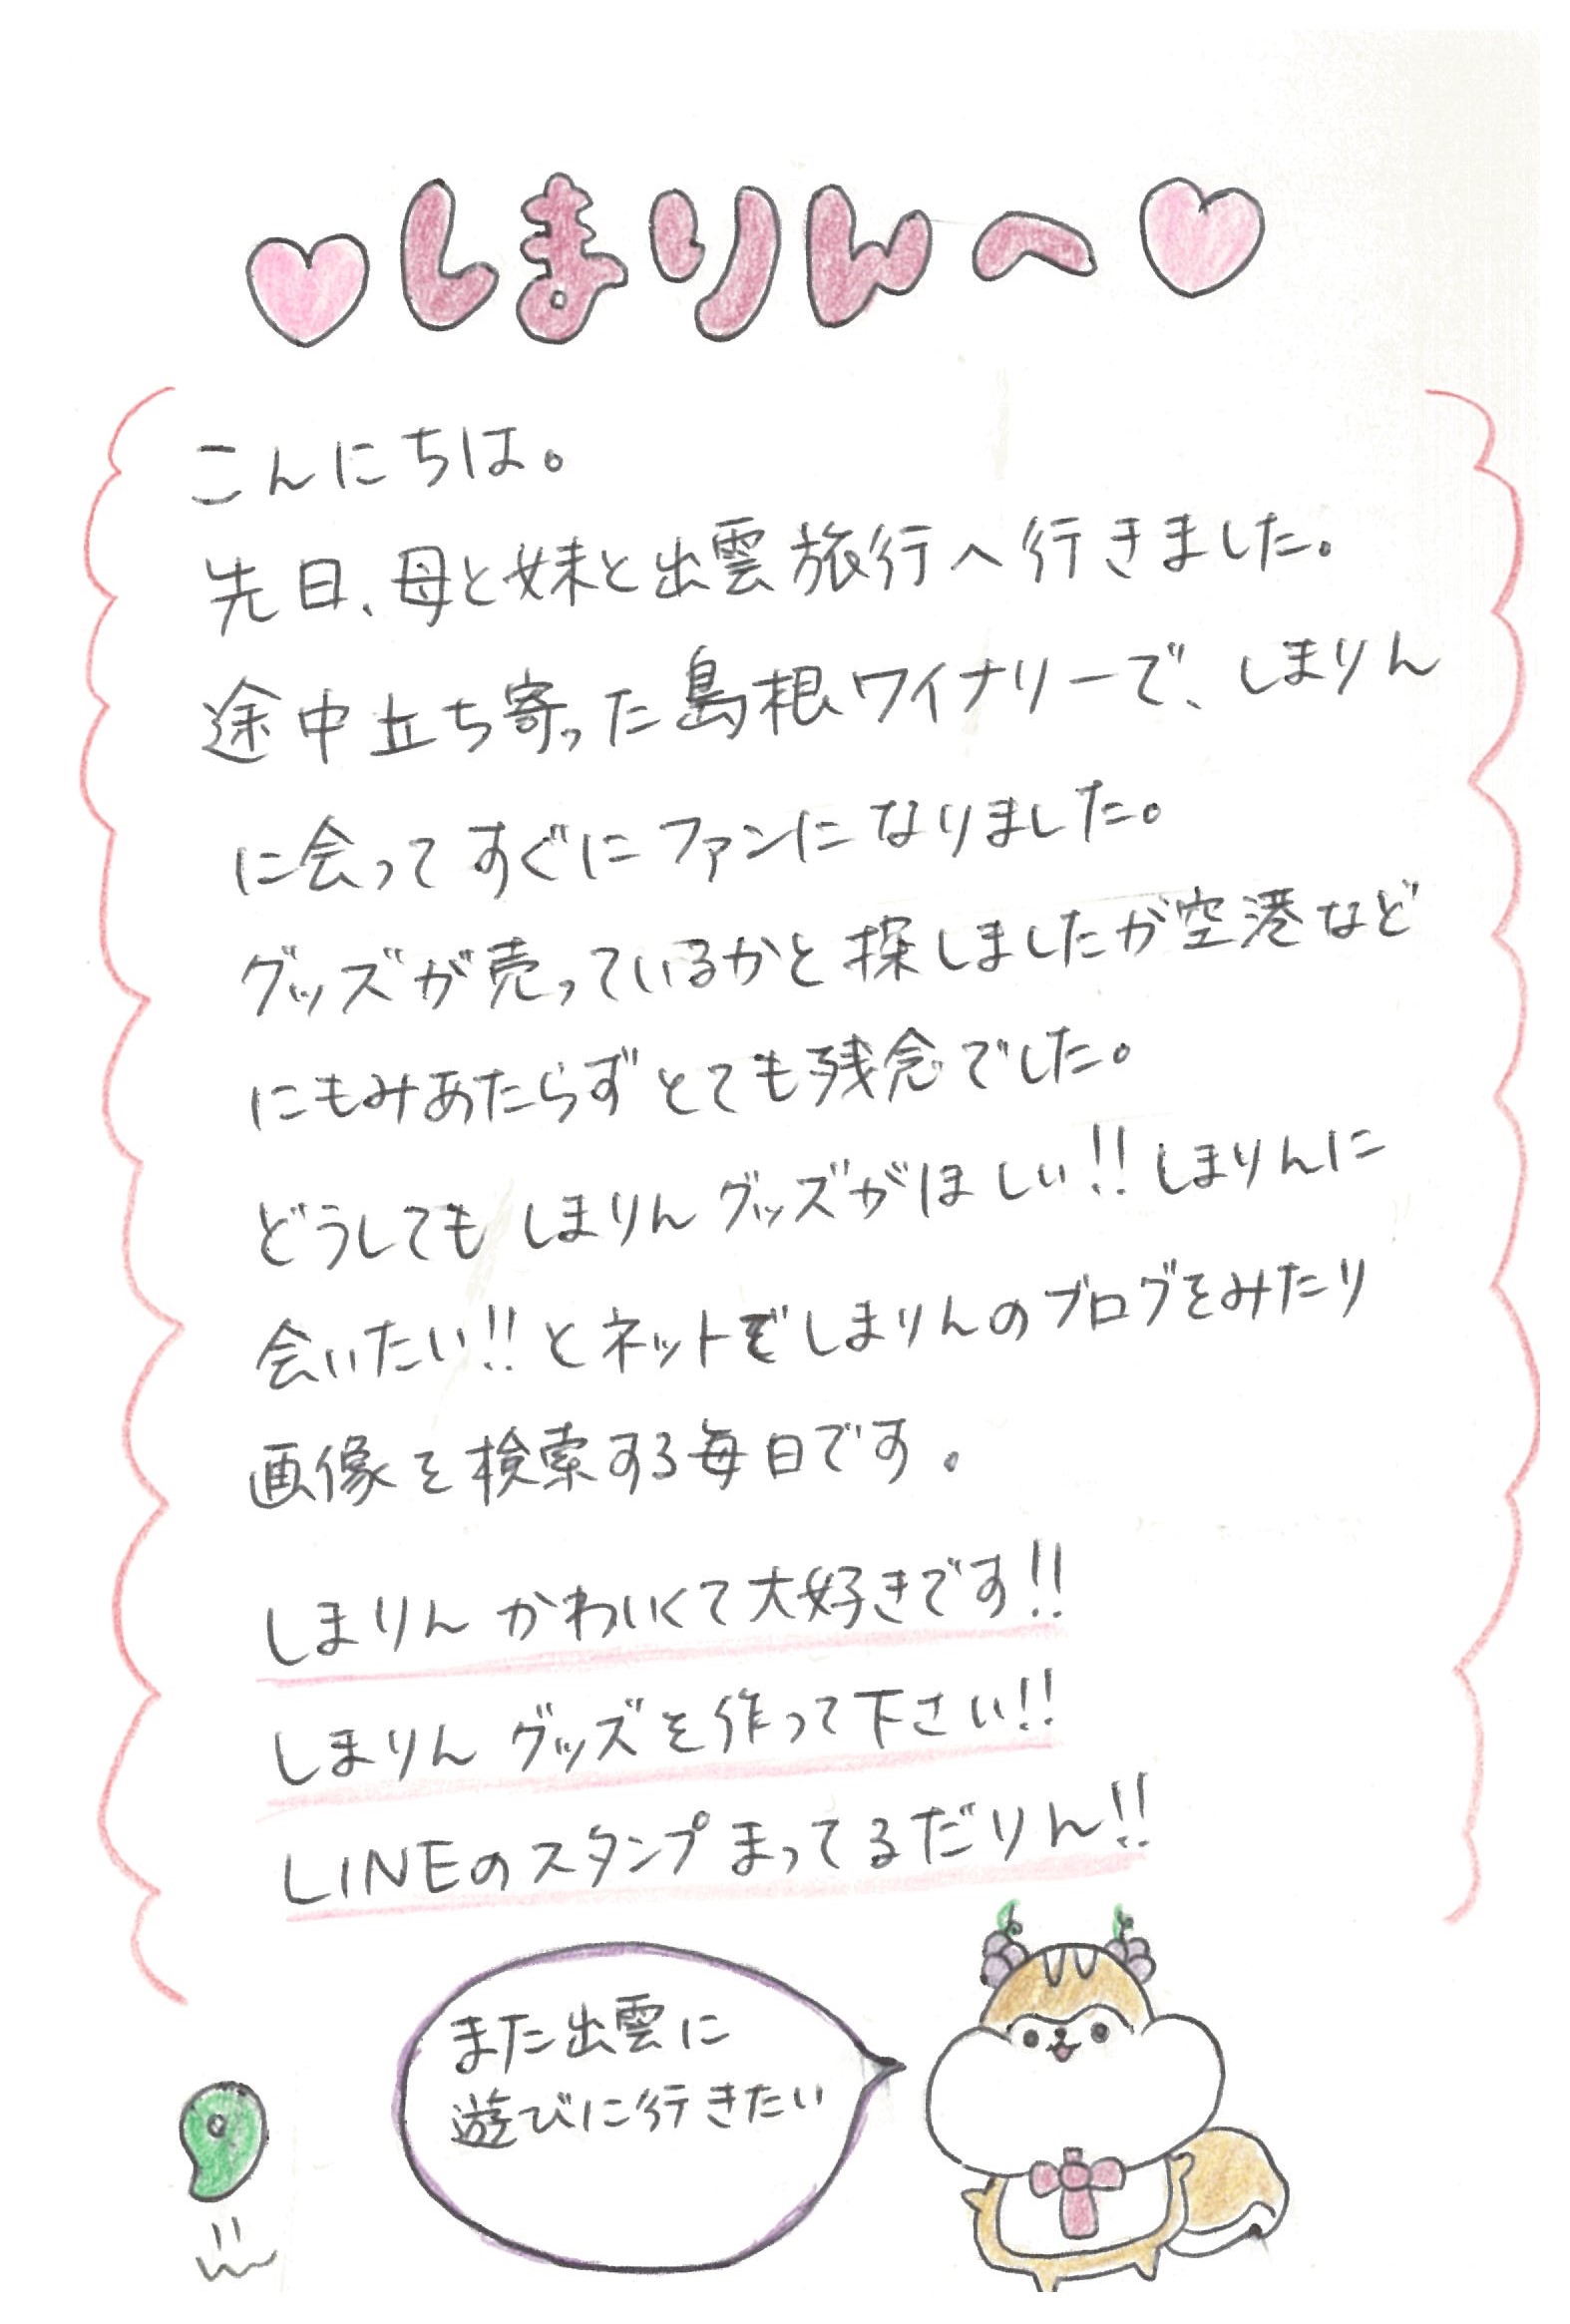 しまりんへ
こんにちは。
先日、母と妹と出雲旅行へ行きました。
途中立ち寄った島根ワイナリーで、しまりん
に会ってすぐにファンになりました。
グッズが売っているかと探しましたが空港など
にもみあたらずとても残念でした。
どうしてもしまりんグッズがほしい!!しまりんに
会いたい!!とネットでしまりんのブログをみたり
画像を検索する毎日です。
しまりんかわいくて大好きです!!
しまりんグッズを作って下さい!!
LINEのスタンプまってるだりん!!
また出雲に
遊びに行きたい